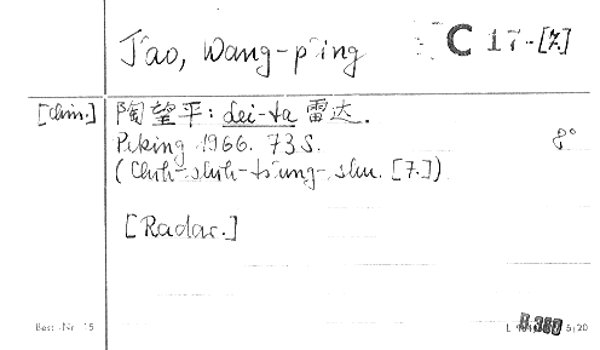 T'ao, Wang-p'ing C 17-[7.]
[Chin.] 陶望平: Lei-ta 雷达.
Peking 1966. 73 S. 8°
(Chih-shih-ts'ung-shu. [7.])
[Radar.]
Best.-Nr. 15 L B 380 5/20